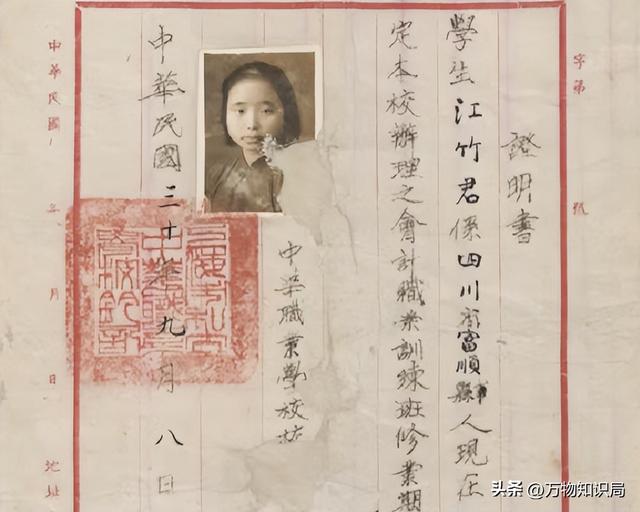 字第 號
證明書
學生江竹君係四川省富順縣人現在
定本校辦理之會計職業訓練班修業期
中華職業學校校
中華民國三十年九月八日
中華民國 年 月 日 地址
头条 @万物知识局